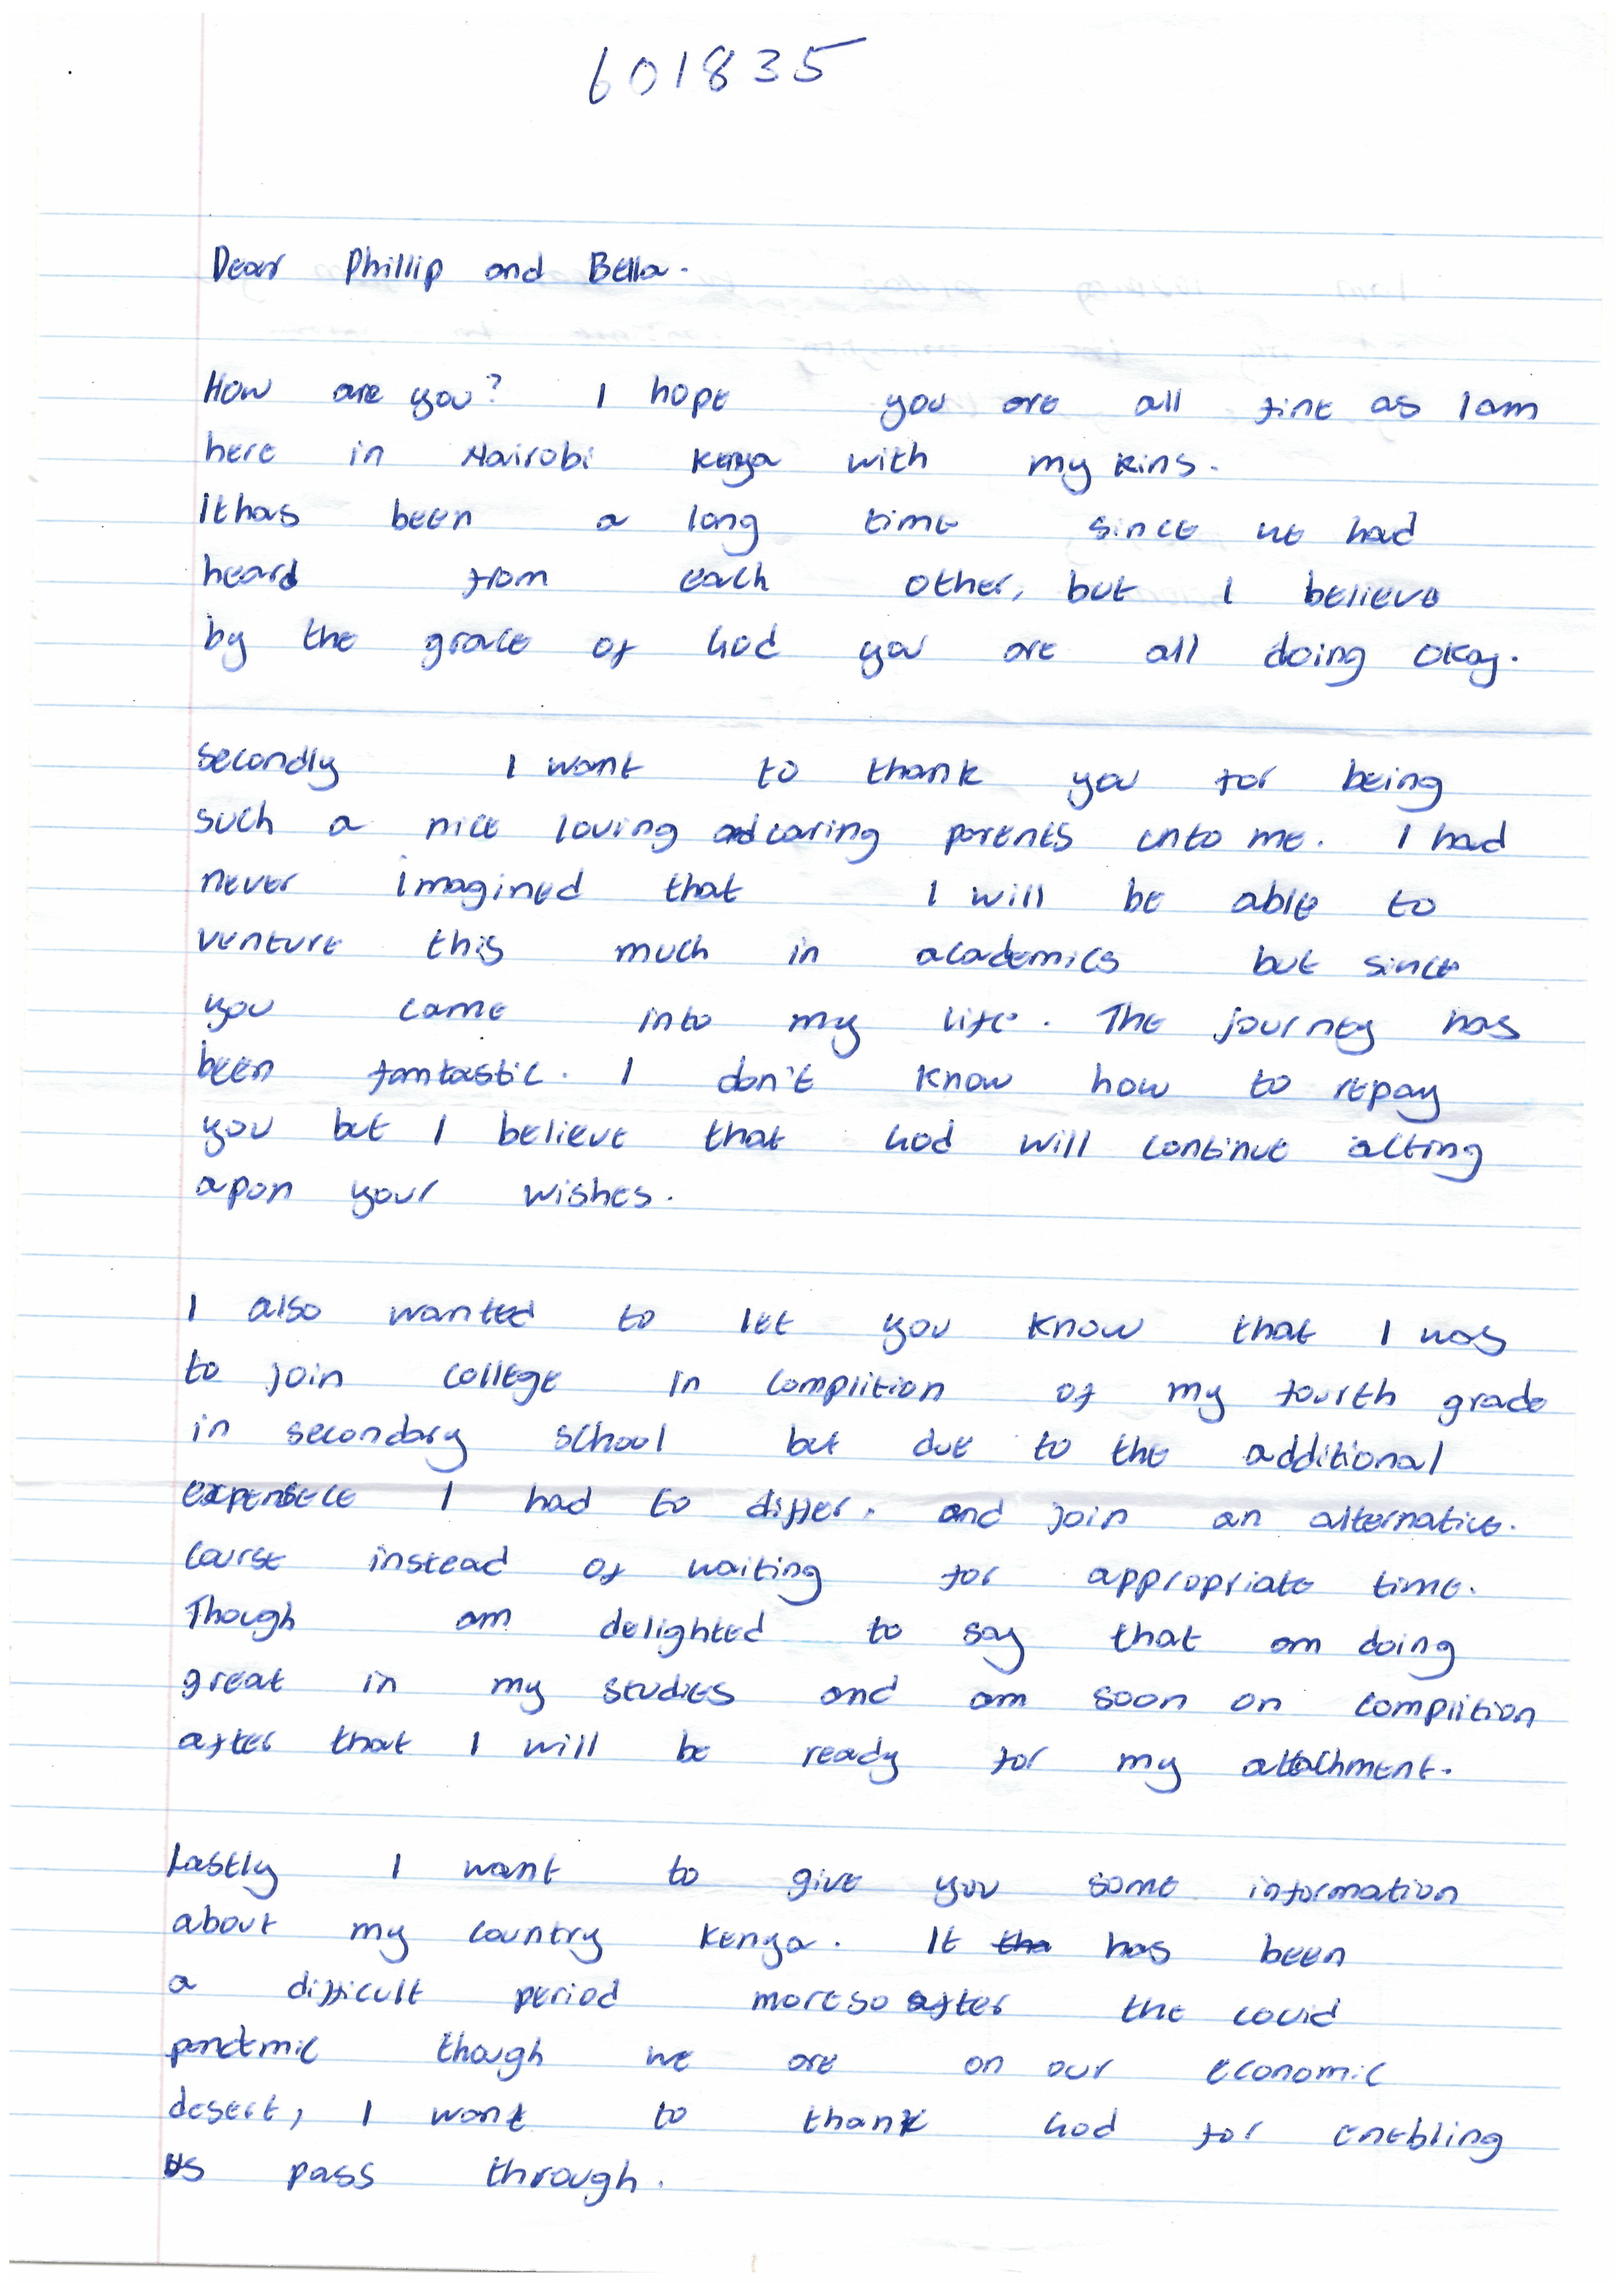 601835
Dear Phillip and Bella.
How are you? I hope you are all fine as Iam
here in Nairobi Kenya with my kins.
Ithas been a long time since we had
heard from each other, but I believe
by the grace of God you are all doing okay.
Secondly I want to thank you for being
such a nice loving and caring parents unto me. I had
never imagined that I will be able to
venture this much in academics but since
you came into my life. The journey has
been famtastic. I don't know how to repay
you but I believe that God will continue acting
apon your wishes.
I also wanted to let you know that I was
to join college in complition of my fourth grade
in secondary school but due to the additional
expensece I had to differ. and join an alternative.
course instead of waiting for appropriate time.
Though am delighted to say that am doing
great in my studies and am soon on complition
after that I will be ready for my attachment.
Lastly I want to give you some information
about my country Kenya. It tha has been
a difficult period moreso after the covid
pandemic though we are on our economic
desert, I want to thank God for enebling
us pass through.